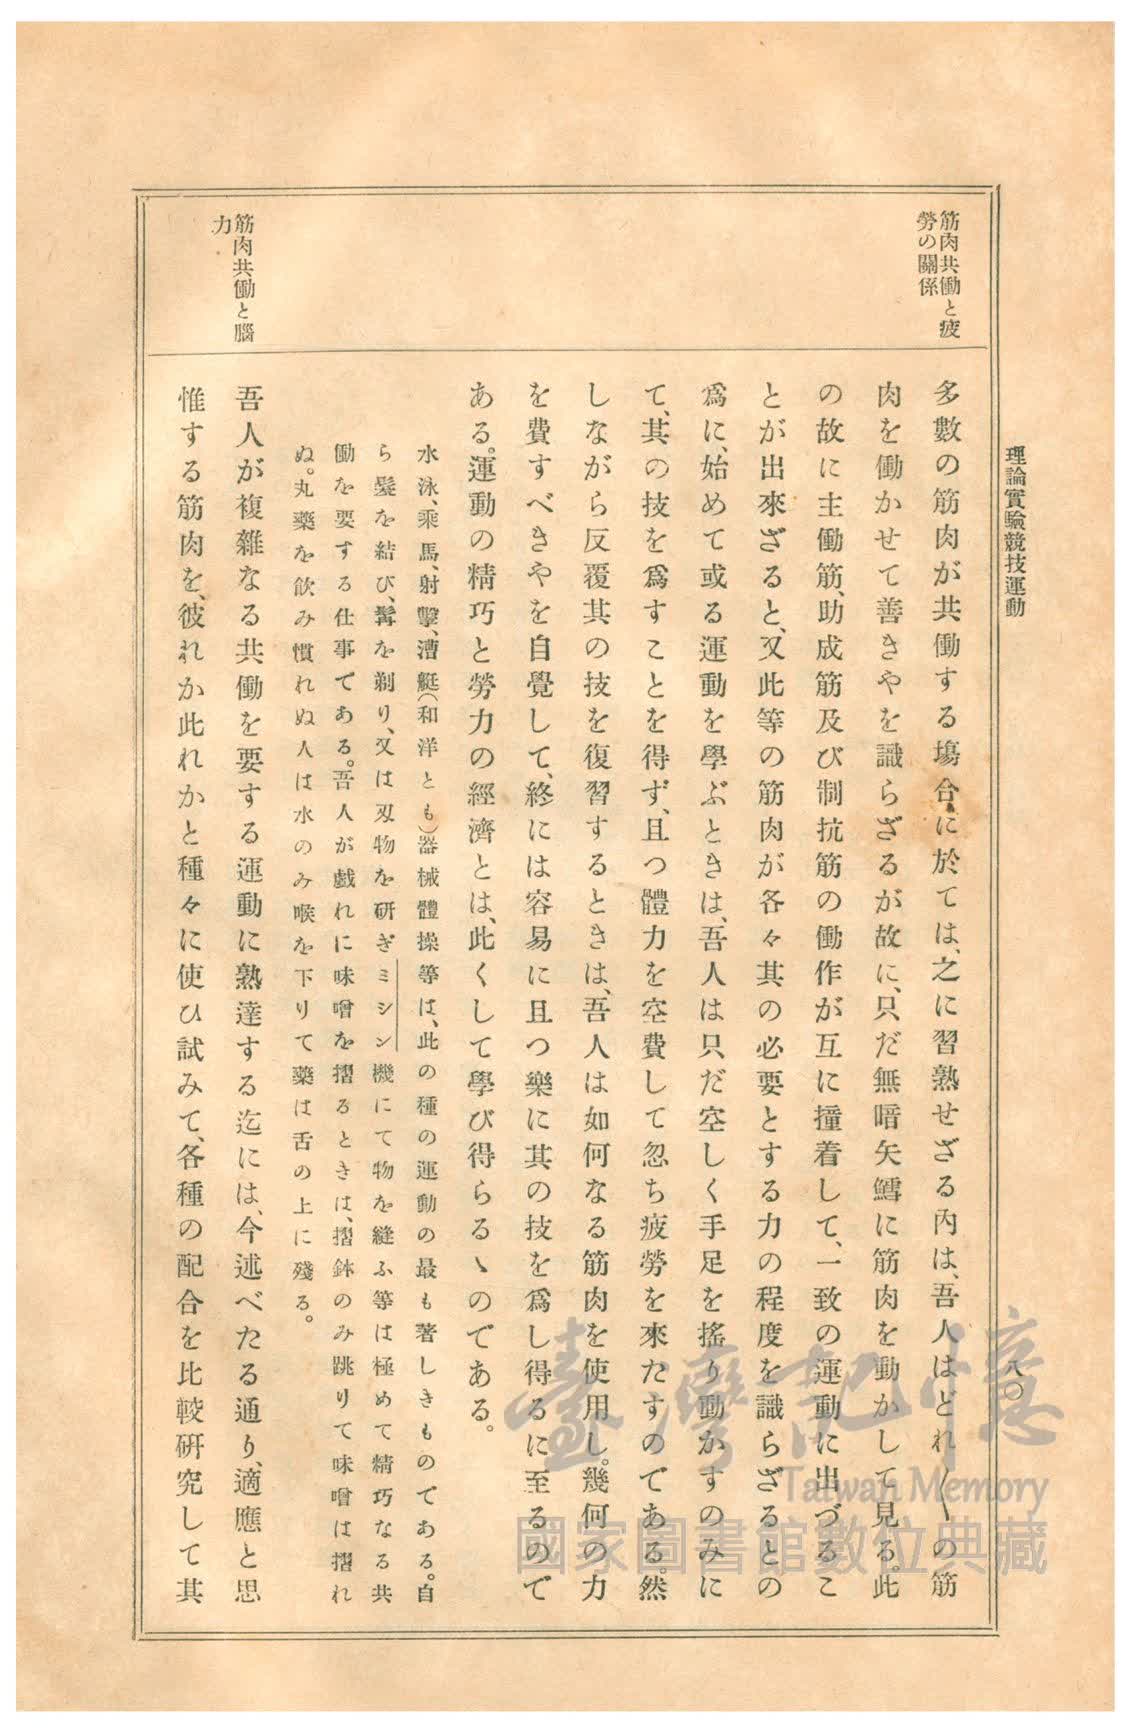 理論實驗競技運動
八〇
筋肉共働と疲
勞の關係
多數の筋肉が共働する塲合に於ては、之に習熟せざる內は、吾人はどれ〱の筋
肉を働かせて善きやを識らざるが故に、只だ無暗矢鱈に筋肉を動かして見る。此
の故に主働筋、助成筋及び制抗筋の働作が互に撞着して、一致の運動に出づるこ
とが出來ざると、又此等の筋肉が各々其の必要とする力の程度を識らざるとの
爲に、始めて或る運動を學ぶときは、吾人は只だ空しく手足を搖り動かすのみに
て、其の技を爲すことを得ず、且つ體力を空費して忽ち疲勞を來たすのである。然
しながら反覆其の技を復習するときは、吾人は如何なる筋肉を使用し。幾何の力
を費すべきやを自覺して、終には容易に且つ樂に其の技を爲し得るに至るので
ある。運動の精巧と勞力の經濟とは、此くして學び得らるゝのである。
水泳、乘馬、射擊、漕艇(和洋とも)器械體操等は、此の種の運動の最も著しきものである。自
ら髮を結び、髯を剃り、又は刄物を硏ぎミシン機にて物を縫ふ等は極めて精巧なる共
働を要する仕事である。吾人が戯れに味噌を摺るときは、摺鉢のみ跳りて味噌は摺れ
ぬ。丸藥を飮み慣れぬ人は水のみ喉を下りて藥は舌の上に殘る。
筋肉共働と腦
力
吾人が複雜なる共働を要する運動に熟達する迄には、今述べたる通り、適應と思
惟する筋肉を、彼れか此れかと種々に使ひ試みて、各種の配合を比較硏究して其
臺灣記憶
Taiwan Memory
國家圖書館數位典藏